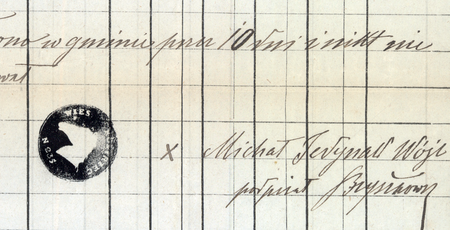 ono w gminie przez 10 dni i nikt nie
wał
x Michał Jedynak Wójt
podpisał